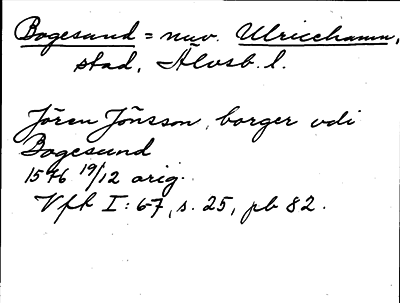 Bogesund = nuv. Ulricehamn,
stad, Älvsb. l.
Jören Jönsson, borger udi
Bogesund
1546 19/12 orig.
Vfk I: 67, s. 25, pb 82.